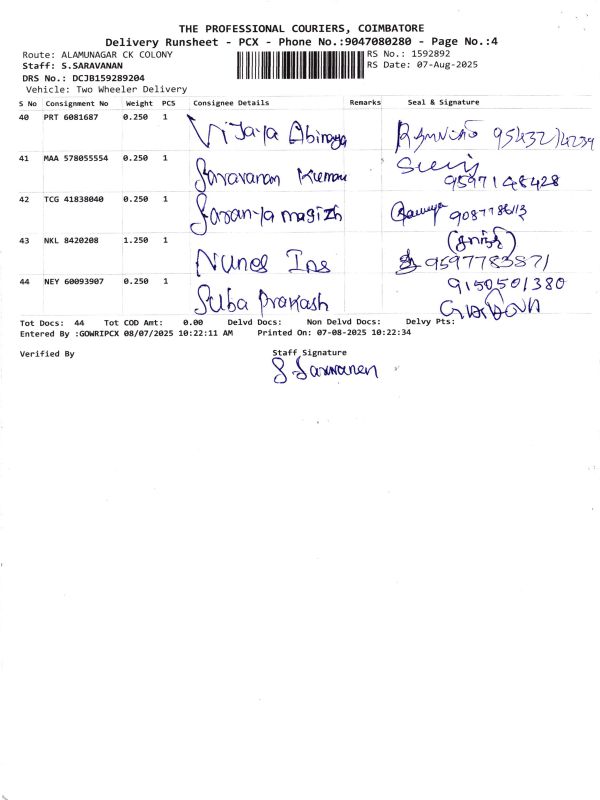 THE PROFESSIONAL COURIERS, COIMBATORE
Delivery Runsheet - PCX - Phone No.:9047080280 - Page No.:4
Route: ALAMUNAGAR CK COLONY RS No.: 1592892
Staff: S.SARAVANAN RS Date: 07-Aug-2025
DRS No.: DCJB159289204
Vehicle: Two Wheeler Delivery
S No Consignment No Weight PCS Consignee Details Remarks Seal & Signature
40 PRT 6081687 0.250 1 Vijaya Abinaya
41 MAA 578055554 0.250 1 Saravanan Kumar 9597148428
42 TCG 41838040 0.250 1 Saranya magizh
43 NKL 8420208 1.250 1 Nunes Ins 9597783871
44 NEY 60093907 0.250 1 Suba Prakash 9150501380
Tot Docs: 44 Tot COD Amt: 0.00 Delvd Docs: Non Delvd Docs: Delvy Pts:
Entered By :GOWRIPCX 08/07/2025 10:22:11 AM Printed On: 07-08-2025 10:22:34
Verified By Staff Signature
S Saravanan